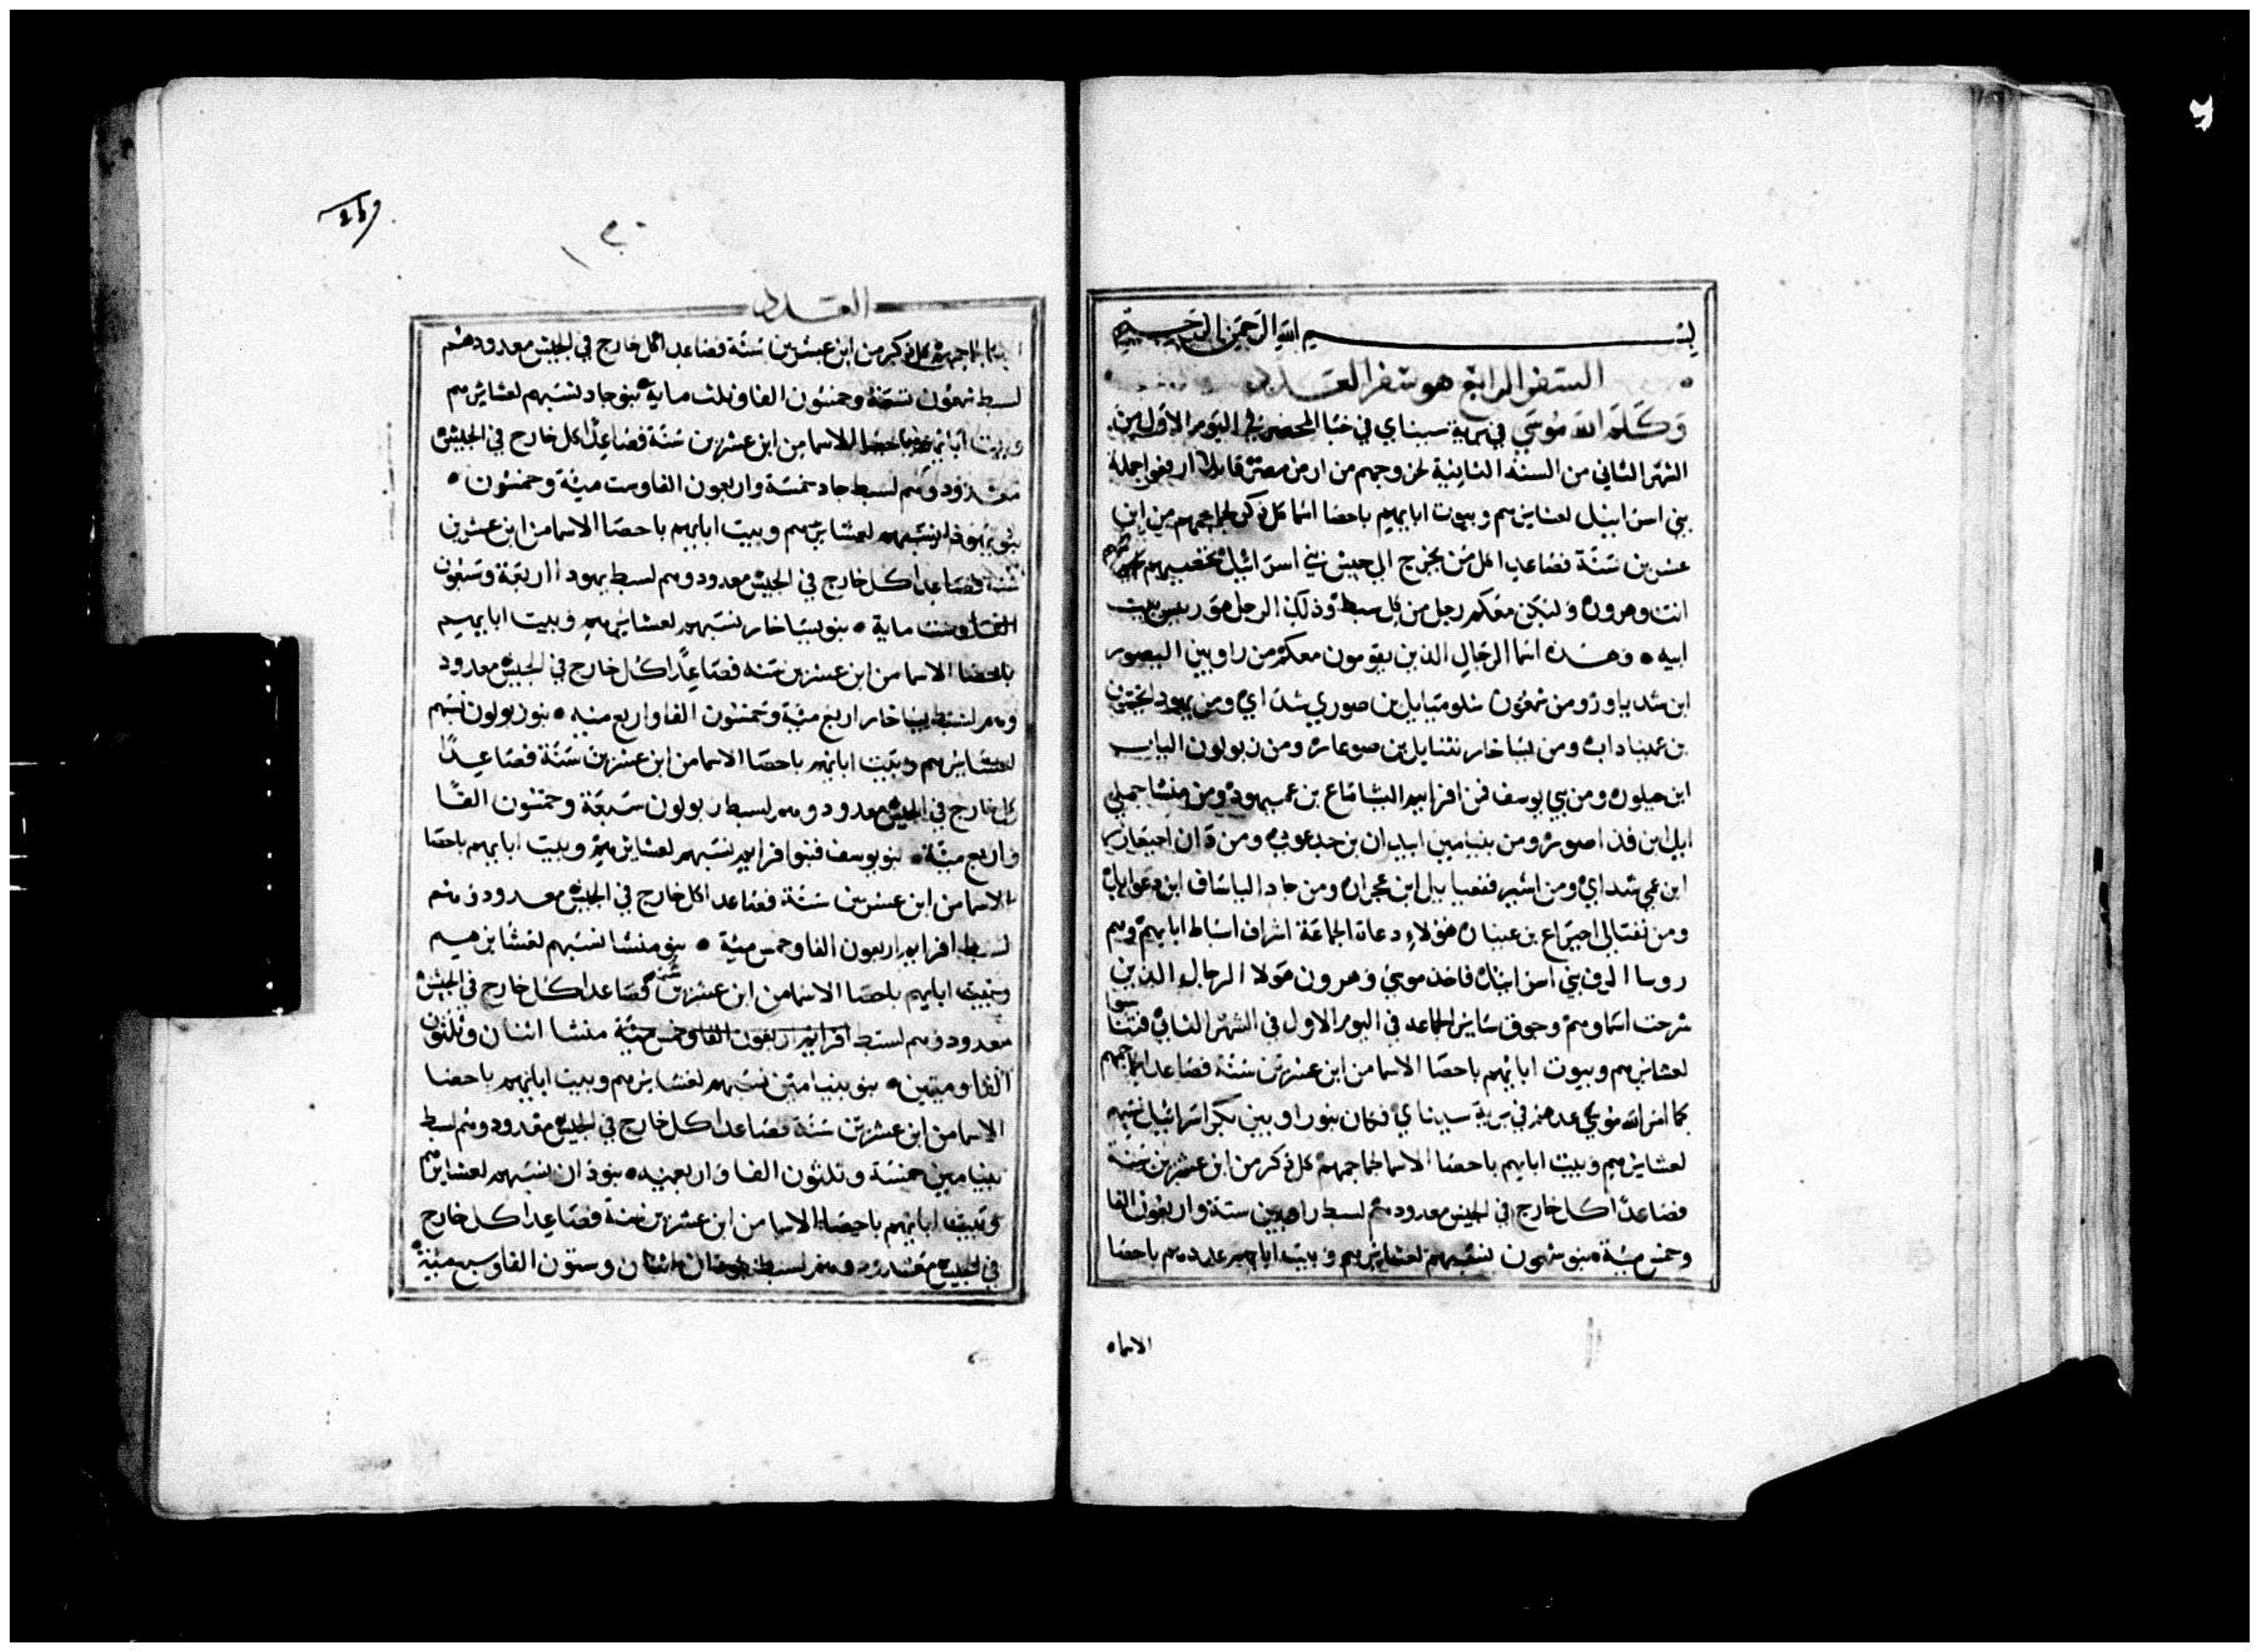 بسم الله الرحمن الرحيم
السفر الرابع هو سفر العدد
وكلم الله موسي في برية سيناي في خبا المحضر في اليوم الاول من
الشهر الثاني من السنه الثانية لخروجهم من ارض مصر قايلا ارفعوا جملة
بني اسراييل لعشايرهم وبيوت ابايهم باحصا اسما كل ذكر لجماجمهم من ابن
عشرين سنة فصاعدا كل من يخرج الي جيش بني اسرائيل
انت وهرون وليكن معكم رجل من كل سبط وذلك الرجل هو ريس بيت
ابيه • وهذه اسما الرجال الذين يقومون معكم من راوبين اليصور
ابن شدياور ومن شمعون شلوميايل بن صوري شداي ومن يهودا نحشون
بن عميناداب ومن يساخار نثنايل بن صوعار ومن زبولون الياب
ابن حيلون ومن بني يوسف فن افرايم اليشاماع بن عميهود ومن منشا جملي
ايل ابن فداصور ومن بنيامين ابيدان بن جدعوني ومن دان احيعازر
ابن عمي شداي ومن اشير فغعياييل ابن عجران ومن جاد الياساف ابن دعوايل
ومن نفتالي احيراع بن عينان هؤلاء دعاة الجماعة اشراف اسباط ابايهم وهم
روسا الوف بني اسراييل فاخذ موسي وهرون هولا الرجال الذين
شرحت اسماوهم وجوق ساير الجماعه في اليوم الاول في الشهر الثاني
لعشايرهم وبيوت ابايهم باحصا الاسما من ابن عشرين سنة فصاعدا
كما امر الله موسي عدهم في برية سيناي فكان بنو راوبين بكر اسرائيل نسبهم
لعشايرهم وبيت ابايهم باحصا الاسما لجماجمهم كل ذكر من ابن عشرين سنة
فصاعدا كل خارج في الجيش معدودهم لسبط راوبين ستة واربعون الفا
وخمس مية • بنو شمعون نسبهم لعشايرهم وبيت ابايهم عددهم باحصا
الاسماء
العدد
لجماجمهم كل ذكر من ابن عشرين سنة فصاعدا كل خارج في الجيش معدودهم
لسبط شمعون تسعة وخمسون الفا وثلث ماية • بنو جاد نسبهم لعشايرهم
وبيت ابايهم باحصا الاسما من ابن عشرين سنة فصاعدا كل خارج في الجيش
معدودوهم لسبط جاد خمسة واربعون الفا وست مية وخمسون •
بنو يهوذا نسبهم لعشايرهم وبيت ابايهم باحصا الاسما من ابن عشرين
سنة فصاعدا كل خارج في الجيش معدودوهم لسبط يهودا اربعة وسبعون
الفا وست ماية • بنو يساخار نسبهم لعشايرهم وبيت ابايهم
باحصا الاسما من ابن عشرين سنه فصاعدا كل خارج في الجيش معدود
وهم لسبط يساخار اربع مية وخمسون الفا واربع ميه • بنو زبولون نسبهم
لعشايرهم وبيت ابايهم باحصا الاسما من ابن عشرين سنة فصاعدا
كل خارج في الجيش معدودوهم لسبط زبولون سبعة وخمسون الفا
واربع مية • بنو يوسف فبنوا افرايم نسبهم لعشايرهم وبيت ابايهم باحصا
الاسما من ابن عشرين سنة فصاعدا كل خارج في الجيش معدودوهم
لسبط افرايم اربعون الفا وخمس مية • بنو منشا نسبهم لعشايرهم
وبيت ابايهم باحصا الاسما من ابن عشرين سنة فصاعدا كل خارج في الجيش
معدودوهم لسبط افرايم اربعون الفا وخمس مية منشا اثنان وثلثون
الفا وميتين • بنو بنيامين نسبهم لعشايرهم وبيت ابايهم باحصا
الاسما من ابن عشرين سنة فصاعدا كل خارج في الجيش معدودوهم لسبط
بنيامين خمسة وثلثون الفا واربعميه • بنو دان نسبهم لعشايرهم
وبيت ابايهم باحصا الاسما من ابن عشرين سنة فصاعدا كل خارج
في الجيش معدودوهم لسبط دان اثنان وستون الفا وسبع مية